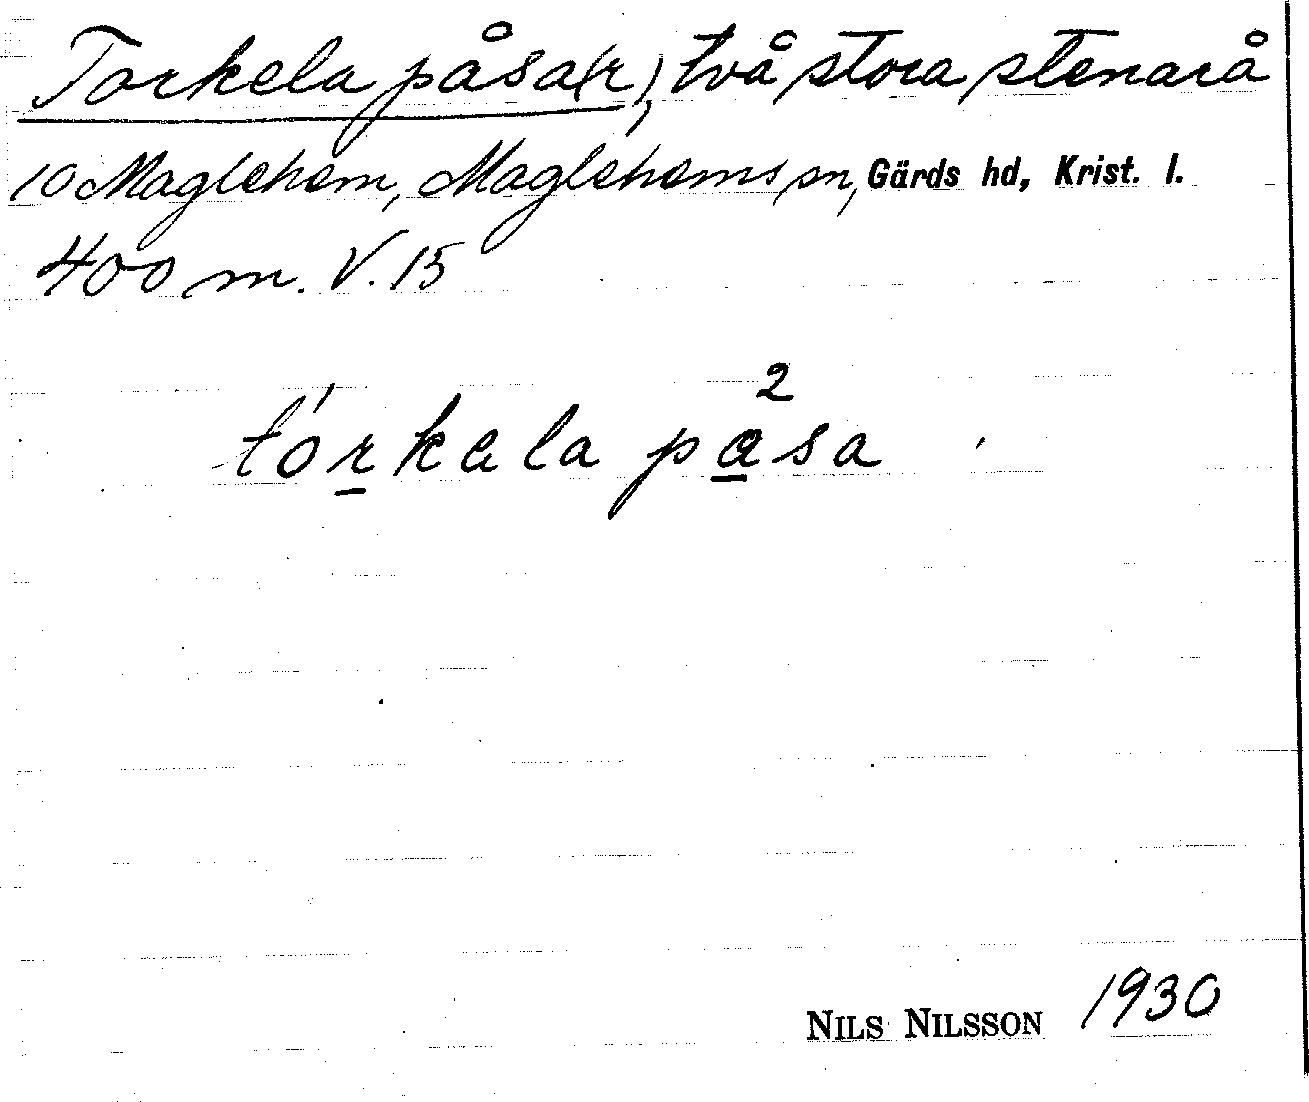 Torkela påsa(r), två stora stenar å
10 Maglehem, Maglehems sn, Gärds hd, Krist. l.
400 m. V. 15
tórkala pa²sa
NILS NILSSON 1930